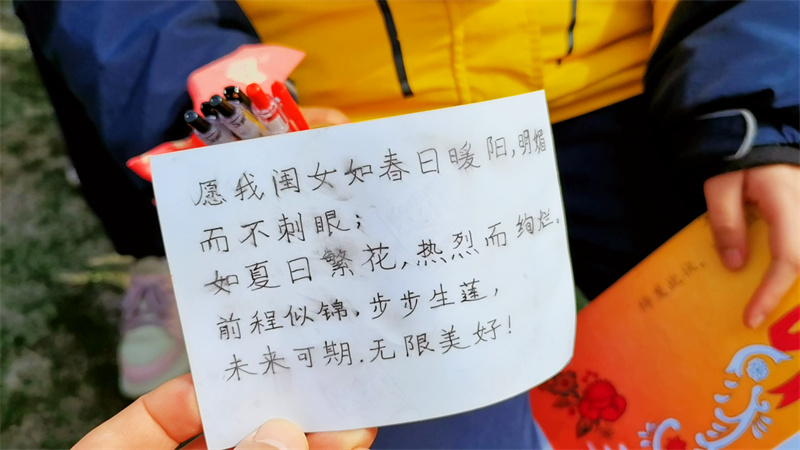 愿我闺女如春日暖阳,明媚
而不刺眼;
如夏日繁花,热烈而绚烂。
前程似锦,步步生莲,
未来可期.无限美好!